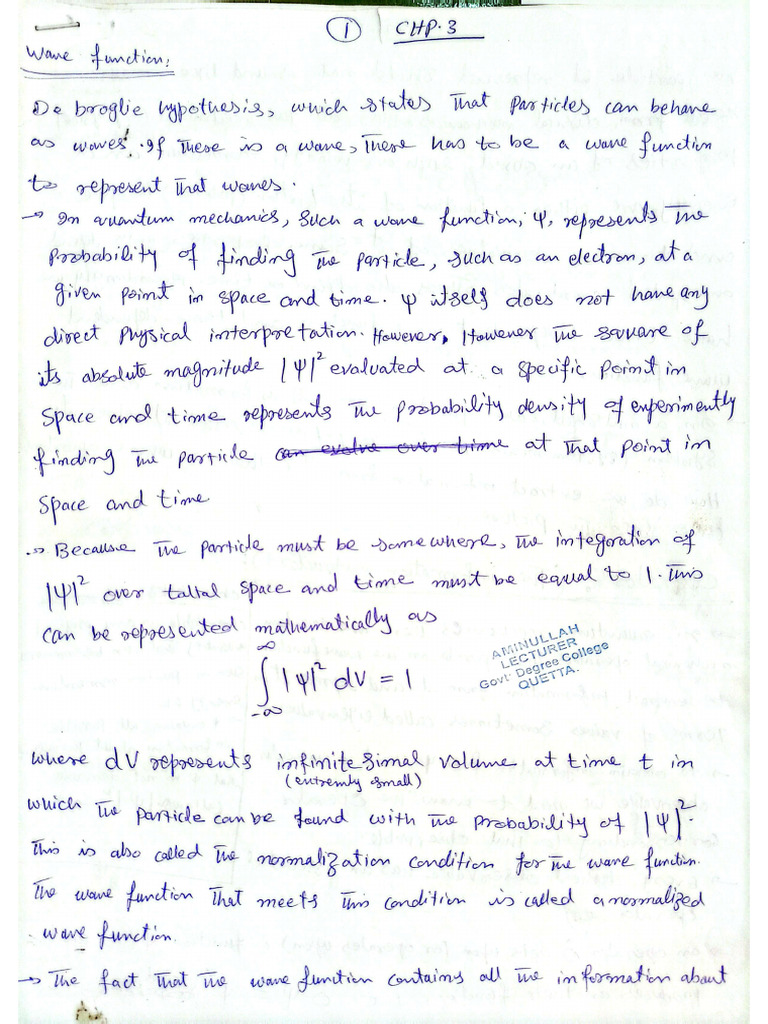 1 CHP.3
Wave function:
De broglie hypothesis, which states That Particles can behave
as waves. If These is a wave, There has to be a wave function
to represent That waves.
→ In quantum mechanics, Such a wave function, ψ, represents The
Probability of finding The Particle, Such as an electron, at a
given Point in space and time. ψ itself does not have any
direct Physical interpretation. However, However The square of
its absolute magnitude |ψ|² evaluated at a specific Point in
Space and time represents The Probability density of experimently
finding The Particle can evolve over time at That Point in
Space and time
→ Because The Particle must be somewhere, The integration of
|ψ|² over taltal space and time must be equal to 1. This
can be represented mathematically as
∫_{-∞}^{∞} |ψ|² dV = 1
AMINULLAH
LECTURER
Govt: Degree College
QUETTA.
where dV represents infinitesimal volume at time t in
(entremly small)
which The Particle can be found with The Probability of |ψ|².
This is also called The normalization condition for The wave function.
The wave function That meets This condition is called a normalized
wave function.
→ The fact That The wave function contains all The information about